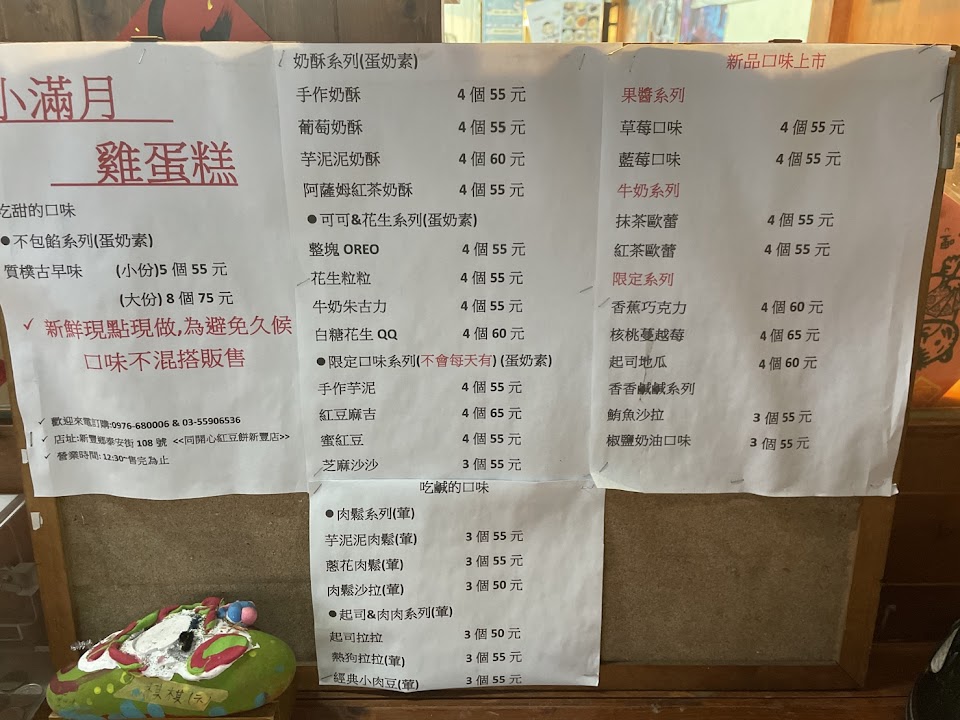 小滿月
雞蛋糕
吃甜的口味
●不包餡系列(蛋奶素)
質樸古早味 (小份)5 個 55 元
(大份) 8 個 75 元
✓ 新鮮現點現做,為避免久候
口味不混搭販售
✓ 歡迎來電訂購:0976-680006 & 03-55906536
✓ 店址:新豐鄉泰安街 108 號 <<同開心紅豆餅新豐店>>
✓ 營業時間: 12:30~售完為止
奶酥系列(蛋奶素)
手作奶酥 4 個 55 元
葡萄奶酥 4 個 55 元
芋泥泥奶酥 4 個 60 元
阿薩姆紅茶奶酥 4 個 55 元
●可可&花生系列(蛋奶素)
整塊 OREO 4 個 55 元
花生粒粒 4 個 55 元
牛奶朱古力 4 個 55 元
白糖花生 QQ 4 個 60 元
●限定口味系列(不會每天有) (蛋奶素)
手作芋泥 4 個 55 元
紅豆麻吉 4 個 65 元
蜜紅豆 4 個 55 元
芝麻沙沙 3 個 55 元
吃鹹的口味
●肉鬆系列(葷)
芋泥泥肉鬆(葷) 3 個 55 元
蔥花肉鬆(葷) 3 個 55 元
肉鬆沙拉(葷) 3 個 50 元
●起司&肉肉系列(葷)
起司拉拉 3 個 50 元
熱狗拉拉(葷) 3 個 55 元
經典小肉豆(葷) 3 個 55 元
新品口味上市
果醬系列
草莓口味 4 個 55 元
藍莓口味 4 個 55 元
牛奶系列
抹茶歐蕾 4 個 55 元
紅茶歐蕾 4 個 55 元
限定系列
香蕉巧克力 4 個 60 元
核桃蔓越莓 4 個 65 元
起司地瓜 4 個 60 元
香香鹹鹹系列
鮪魚沙拉 3 個 55 元
椒鹽奶油口味 3 個 55 元